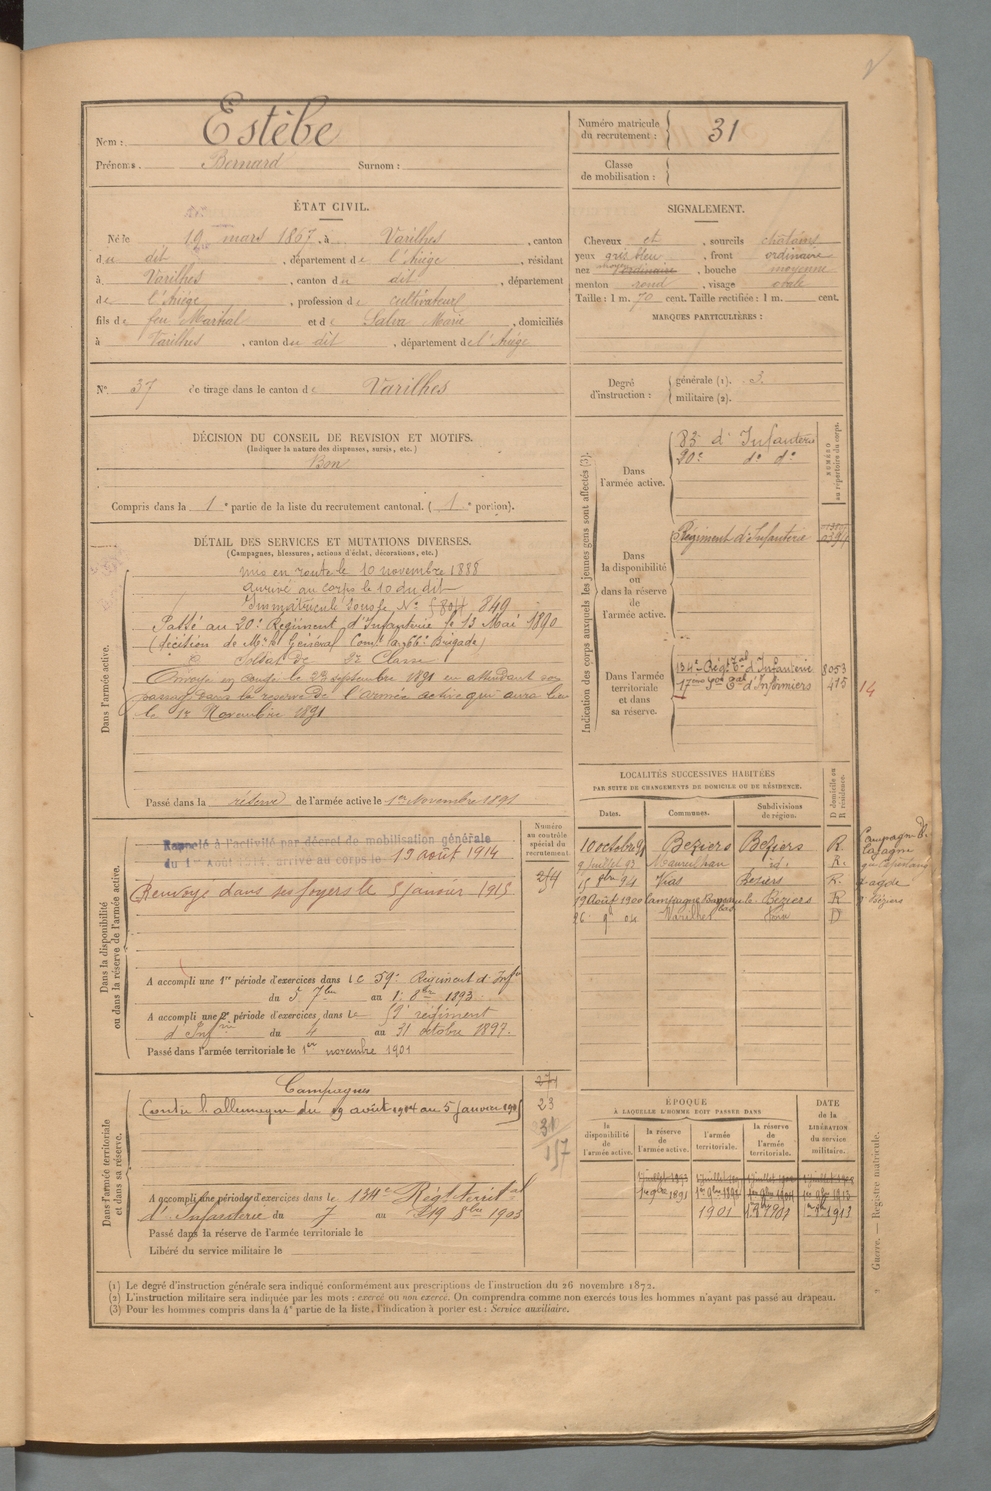 Nom : Estèbe
Prénoms. Bernard Surnom :
Numéro matricule du recrutement : 31
Classe de mobilisation :
ÉTAT CIVIL.
Né le 19 mars 1867, à Varilhes, canton
du dit, département de l'Ariège, résidant
à Varilhes, canton du dit, département
de l'Ariège, profession de cultivateur
fils de feu Martial et de Salva Marie, domiciliés
à Varilhes, canton du dit, département de l'Ariège
N° 37 de tirage dans le canton de Varilhes
SIGNALEMENT.
Cheveux et, sourcils châtains
yeux gris bleu, front ordinaire
nez ordinaire, bouche moyenne
menton rond, visage ovale
Taille : 1 m. 70 cent. Taille rectifiée : 1 m. cent.
MARQUES PARTICULIÈRES :
Degré d'instruction : générale (1). 3.
militaire (2).
DÉCISION DU CONSEIL DE REVISION ET MOTIFS.
(Indiquer la nature des dispenses, sursis, etc.)
Bon
Compris dans la 1e partie de la liste du recrutement cantonal. (1e portion).
DÉTAIL DES SERVICES ET MUTATIONS DIVERSES.
(Campagnes, blessures, actions d'éclat, décorations, etc.)
Dans l'armée active.
Mis en route le 10 novembre 1888
Arrivé au corps le 10 du dit
Immatriculé sous le N° 849
Passé au 20e Régiment d'Infanterie le 13 Mai 1890
(décision de Mr le Général Comt la 66e Brigade)
Soldat de 2e Classe
Envoyé en congé le 23 septembre 1891 en attendant son
passage dans la réserve de l'armée active qui aura lieu
le 1er Novembre 1891
Passé dans la réserve de l'armée active le 1er Novembre 1891
Indication des corps auxquels les jeunes gens sont affectés (3).
NUMÉRO au répertoire du corps.
Dans l'armée active.
83e d'Infanterie
20e do do
Dans la disponibilité ou dans la réserve de l'armée active.
Régiment d'Infanterie
Dans l'armée territoriale et dans sa réserve.
134e Régt Tal d'Infanterie 8053
17eme Son Tale d'Infirmiers 415
14
LOCALITÉS SUCCESSIVES HABITÉES
PAR SUITE DE CHANGEMENTS DE DOMICILE OU DE RÉSIDENCE.
Dates. Communes. Subdivisions de région. D domicile ou R résidence.
10 octobre 91 Béziers Béziers R.
9 juillet 93 Maureilhan id. R.
15 8bre 94 Vias Béziers R.
19 Août 1900 Campagne Béziers R
26 9 04 Varilhes Foix D
Dans la disponibilité ou dans la réserve de l'armée active.
Numéro au contrôle spécial du recrutement.
Rappelé à l'activité par décret de mobilisation générale
du 1er Août 1914, arrivé au corps le 19 août 1914
274
Renvoyé dans ses foyers le 5 janvier 1915
A accompli une 1re période d'exercices dans le 59e Régiment d'Infie
du 5 7bre au 1er 8bre 1893
A accompli une 2e période d'exercices, dans le 59e régiment
d'Infrie du 4 au 31 octobre 1897.
Passé dans l'armée territoriale le 1er novembre 1901
Dans l'armée territoriale et dans sa réserve.
Campagnes
Contre l'allemagne du 19 août 1914 au 5 Janvier 1915
274
23
31
157
A accompli une période d'exercices dans le 134e Régt territal
d'Infanterie du 7 au 19 8bre 1903
Passé dans la réserve de l'armée territoriale le
Libéré du service militaire le
ÉPOQUE
À LAQUELLE L'HOMME DOIT PASSER DANS
la disponibilité de l'armée active. la réserve de l'armée active. l'armée territoriale. la réserve de l'armée territoriale. DATE de la LIBÉRATION du service militaire.
1er 9bre 1891
1901
(1) Le degré d'instruction générale sera indiqué conformément aux prescriptions de l'instruction du 26 novembre 1872.
(2) L'instruction militaire sera indiquée par les mots : exercé ou non exercé. On comprendra comme non exercés tous les hommes n'ayant pas passé au drapeau.
(3) Pour les hommes compris dans la 4e partie de la liste, l'indication à porter est : Service auxiliaire.
Guerre. — Registre matricule.